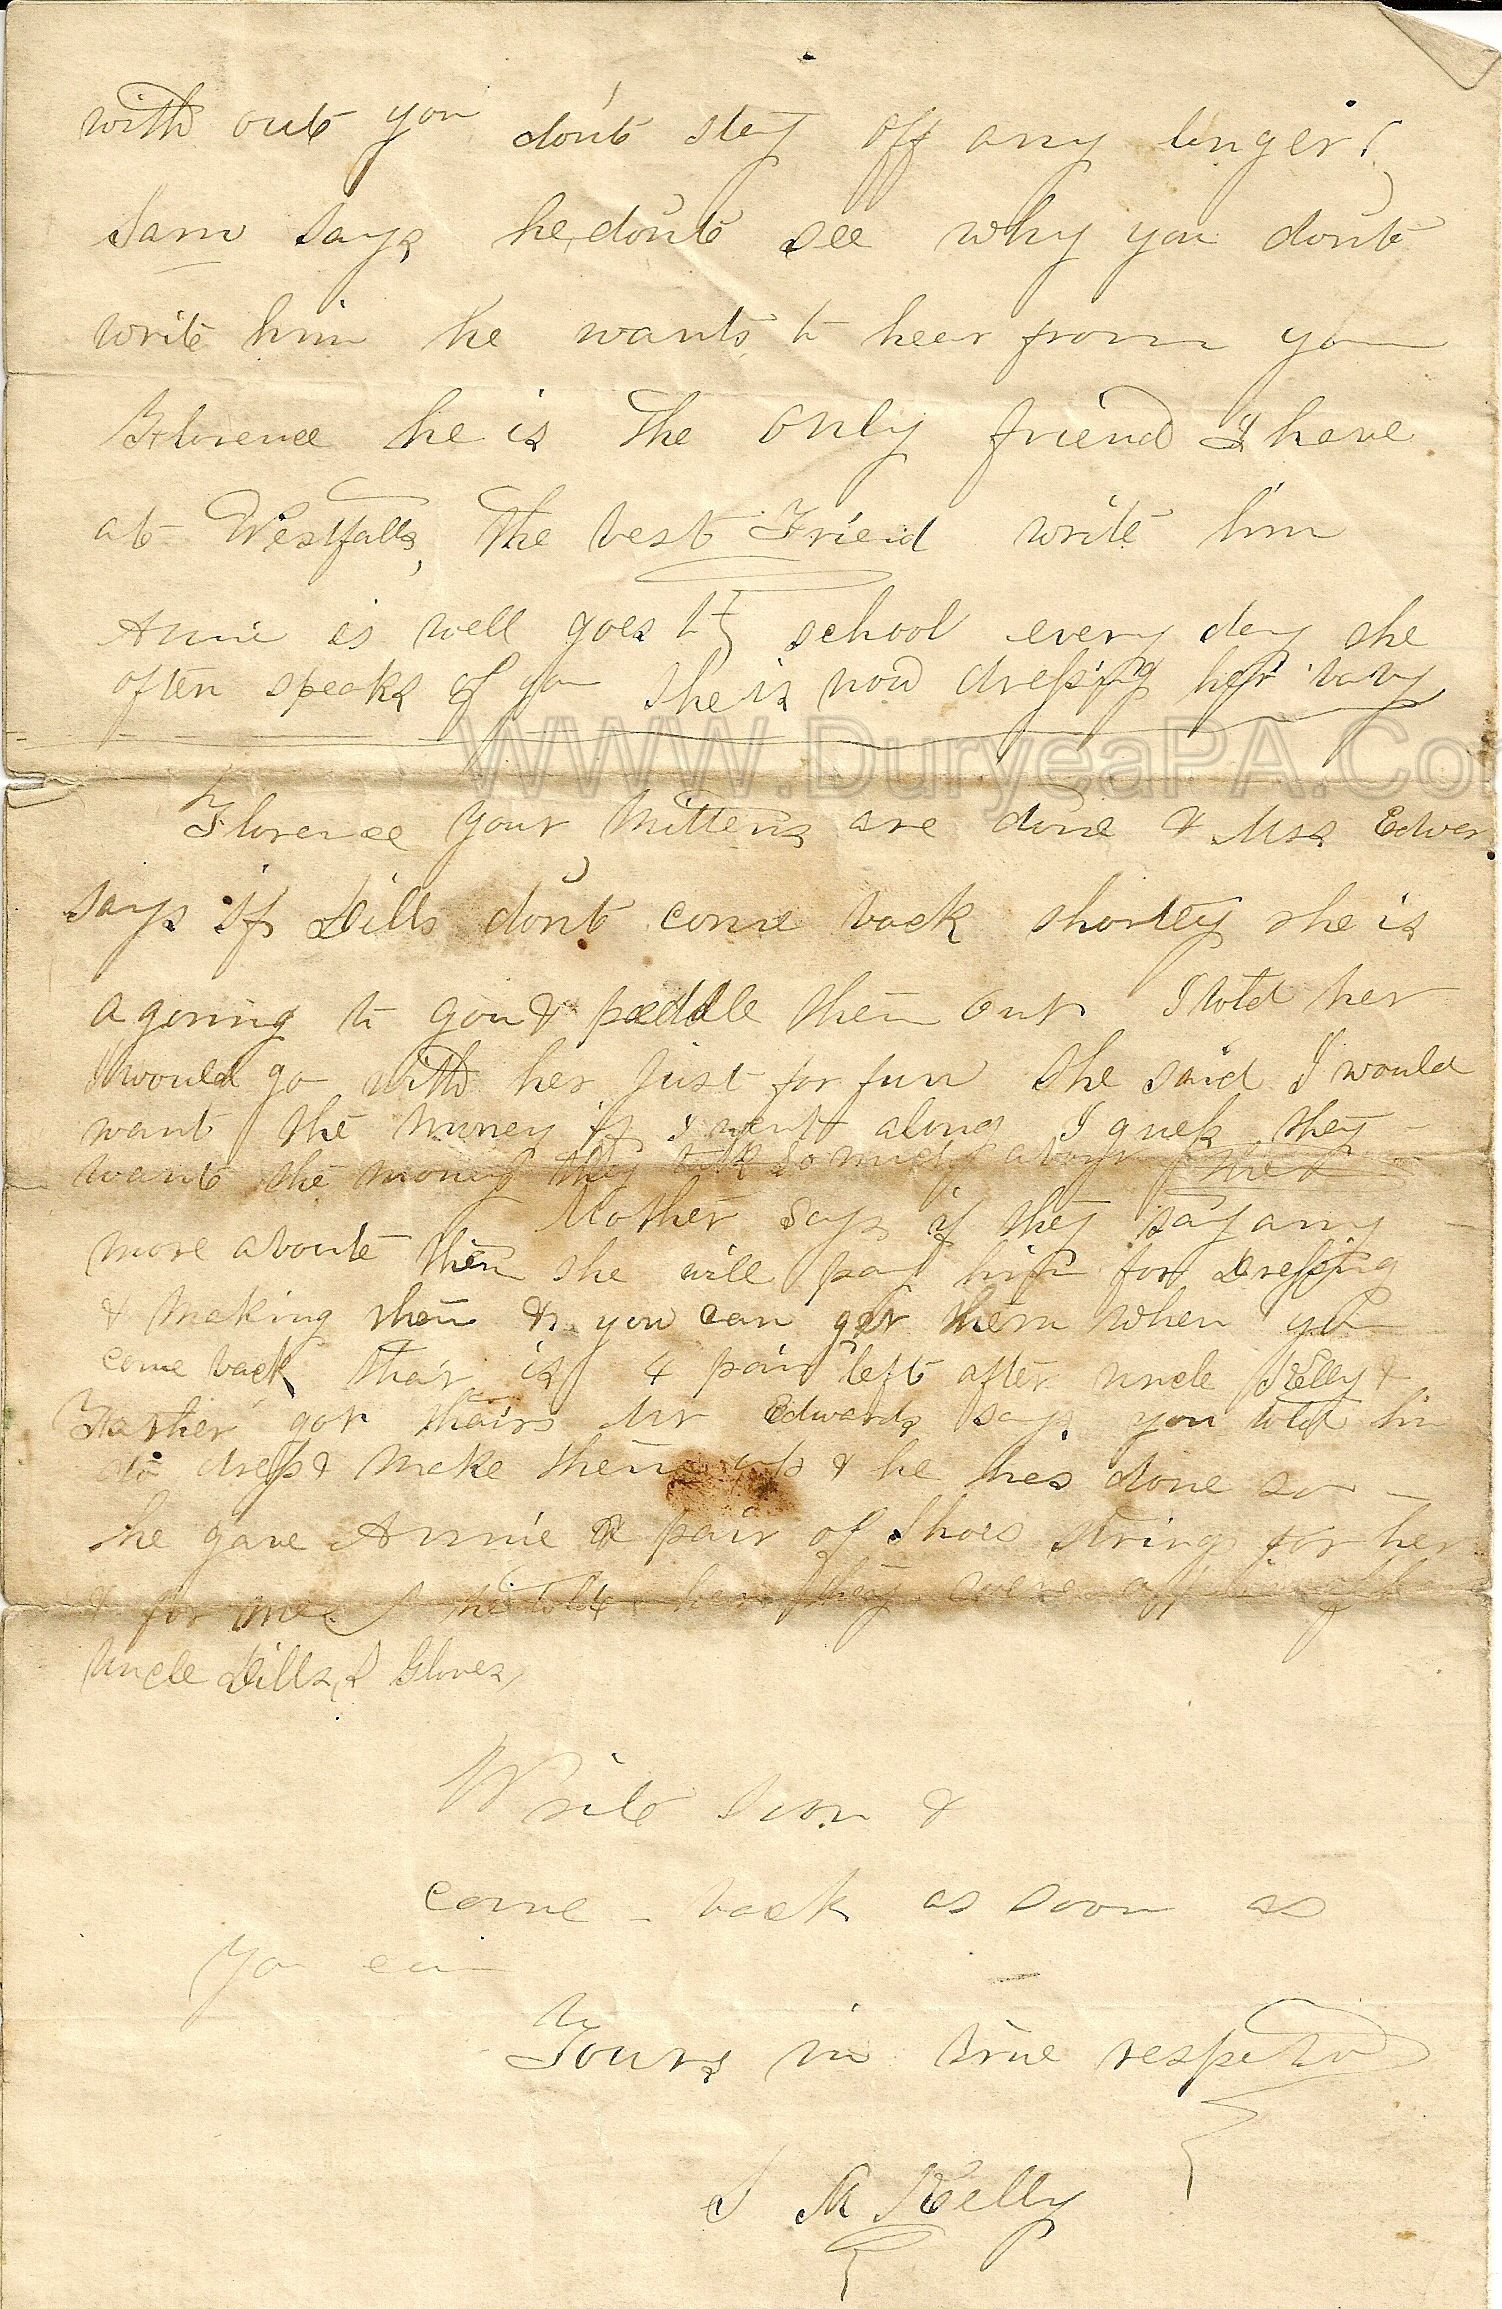 with out you don't stay off any longer!
Sam says he don't see why you don't
write him he wants to hear from you
Florence he is the only friend I have
at Westfalls, the best Friend write him
Annie is well goes to school every day she
often speaks of you She is now dressing her baby
WWW.DuryeaPA.Co
Florence your mittens are done & Mrs Edwar
says if Dills don't come back shortly she is
a going to go & peddle them out I told her
I would go with her just for fun She said I would
want the money if I went along I guess they
want the money they talk so much about
Mother says if they say any
more aboute them she will pay him for Dressing
& making them & you can get them when you
come back thair is 4 pair left after uncle Kelly &
Farther got thairs Mr Edwards says you told him
to dress & make them up & he has done so
he gave Annie a pair of Shoes strings for her
& for me & he told her they were off
Uncle Dills, Gloves,
Write soon &
come back as soon as
You can
Yours in true respect
S M Kelly